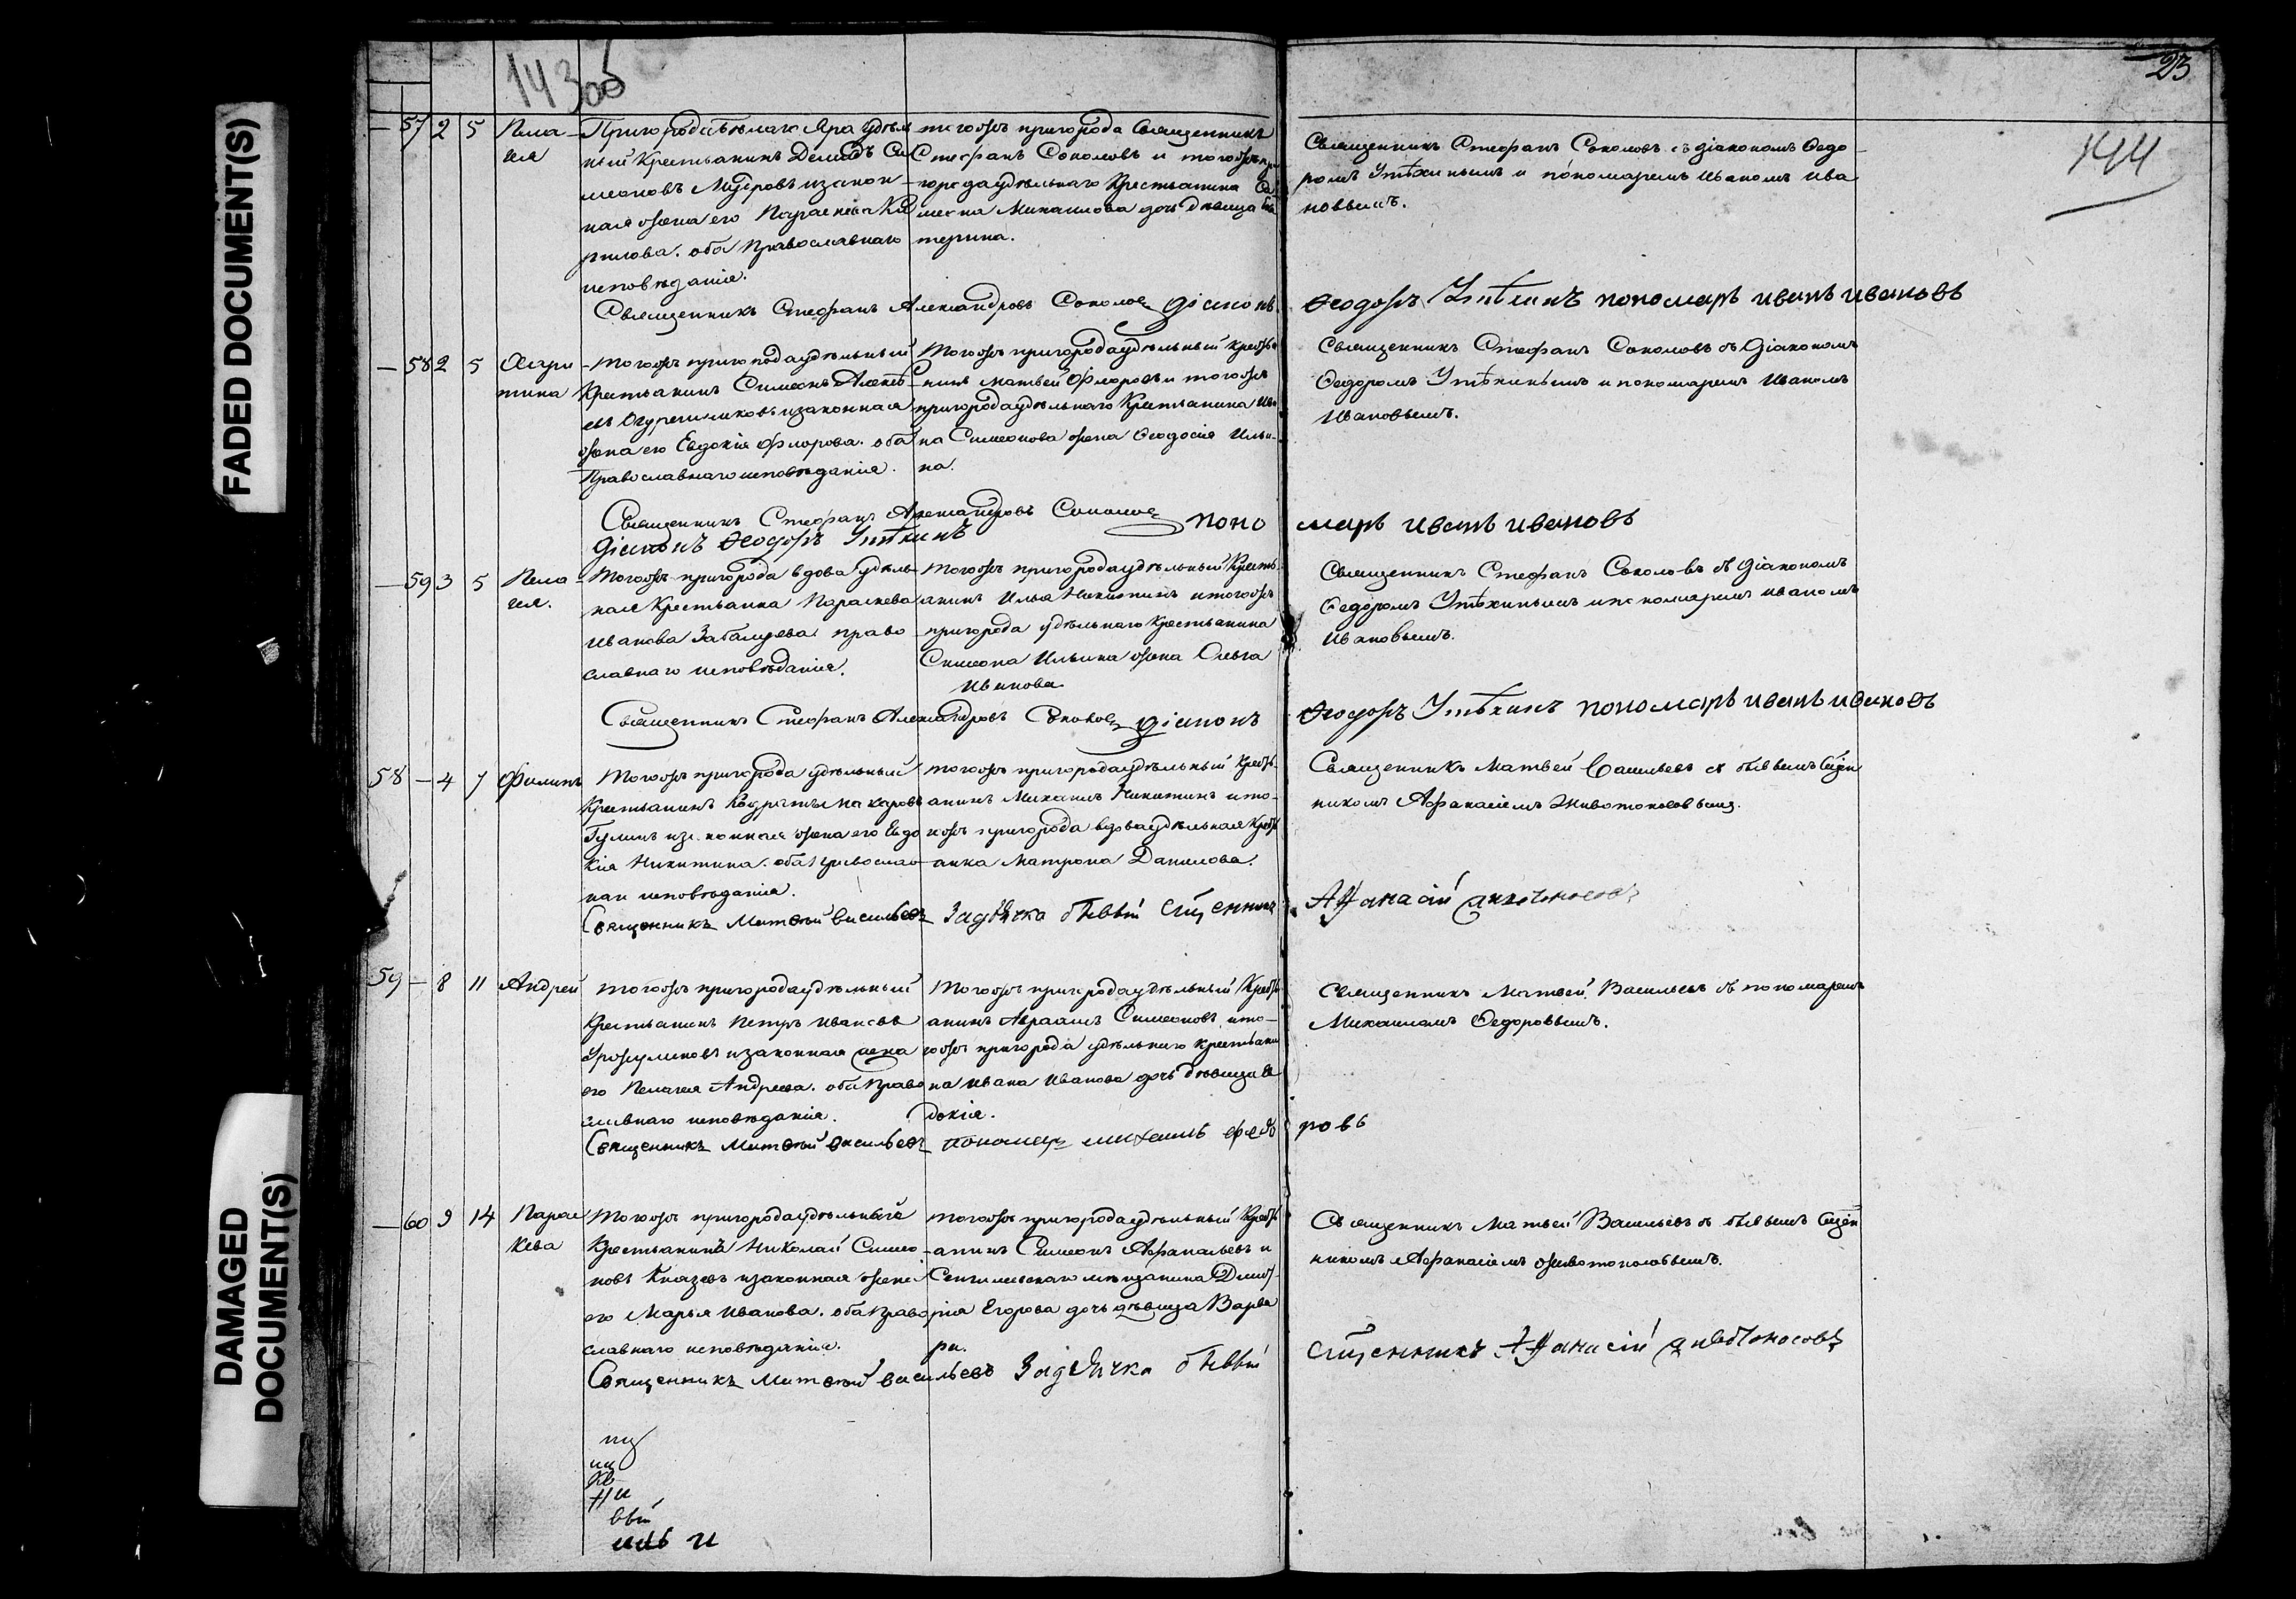 FADED DOCUMENT(S)
DAMAGED
DOCUMENT(S)
143 об
23
144
— 57 2 5 Пела-
гия
Пригорода Белаго Яра удѣль-
ный Крестьянинъ Демидъ Си-
меоновъ изакон-
ная жена его Параскева Ки-
рилова. оба Православнаго
исповѣданія.
тогожъ пригорода Священникъ
Стефанъ Соколовъ и тогожъ при-
города удѣльнаго Крестьянина Си-
меона Михаилова дочь дѣвица Ека
терина.
Священникъ Стефанъ Соколовъ съ діакономъ Ѳедо-
ромъ Утѣхинымъ и пономаремъ Иваномъ Ива
новымъ.
Священникъ Стефанъ Александровъ Соколов діаконъ Ѳеодоръ Утѣхинъ пономаръ иванъ ивановъ
— 58 2 5 Хари
тина
тогожъ пригорода удѣльный
Крестьянинъ Симеонъ Алексѣ-
евъ Огурешниковъ изаконная
жена его Евдокія Флорова. оба
Православнаго исповѣданія.
Тогожъ пригорода удѣльный крестья
нинъ Матвей Флоровъ и тогожъ
пригорода удѣльнаго Крестьянина Ива
на Симеонова жена Ѳеодосія Ильи-
на.
Священникъ Стефанъ Соколовъ съ діакономъ
Ѳедоромъ Утѣхинымъ и пономаремъ Иваномъ
Ивановымъ.
Священникъ Стефанъ Александровъ Соколов поно маръ иванъ ивановъ
діаконъ Ѳеодоръ Утѣхинъ
— 59 3 5 Пела-
гия.
Тогожъ пригорода вдова удѣль-
ная Крестьянка Параскева
Иванова право-
славнаго исповѣданія.
тогожъ пригорода удѣльный Кресть-
янинъ Илья Никитинъ и тогожъ
пригорода удѣльнаго крестьянина
Симеона Ильина жена Ольга
Иванова
Священникъ Стефанъ Соколовъ съ діакономъ
Ѳедоромъ Утѣхинымъ и пономаремъ иваномъ
Ивановымъ.
Священникъ Стефанъ Александровъ Соколов діаконъ Ѳеодоръ Утѣхинъ пономаръ иванъ ивановъ
58 — 4 7 Филипъ
Тогожъ пригорода удѣльный
Крестьянинъ Кондратъ Макаровъ
Гулинъ изаконная жена его Евдо
кія Никитина. оба Православ
наго исповѣданія.
тогожъ пригорода удѣльный Кресть-
янинъ Михаилъ Никитинъ и то-
гожъ пригорода вдова удѣльная Кресть
янка Матрона Данилова.
Священникъ Матвей Васильевъ съ бывшемъ Сщен
никомъ Афанасіемъ Животоносовымъ.
Священникъ Матвѣй Васильевъ За дьячка бывый Сщенникъ Афанасій Животоносовъ
59 — 8 11 Андрей
тогожъ пригорода удѣльный
Крестьянинъ Петръ Ивановъ
изаконная жена
его Пелагея Андреева. оба Право
славнаго исповѣданія.
Тогожъ пригорода удѣльный Кресть
янинъ Авраамъ Симеоновъ, ито-
гожъ пригорода удѣльнаго крестьяни
на Ивана Иванова дочь дѣвица Ев
докія.
Священникъ Матвей Васильевъ съ пономаремъ
Михаиломъ Ѳедоровымъ.
Священникъ Матвѣй Васильевъ пономаръ михаилъ федо ровъ
— 60 9 14 Парас
кева
Тогожъ пригорода удѣльный
Крестьянинъ Николай Симео-
новъ Князевъ изаконная жена
его Марья Иванова. оба Право
славнаго исповѣданія.
тогожъ пригорода удѣльный Кресть
янинъ Симеонъ Афанасьевъ и
Сенгилевскаго мѣщанина Дмит-
рія Егорова дочь дѣвица Варва
ра.
Священникъ Матвей Васильевъ съ бывшемъ Сщен
никомъ Афанасіемъ Животоносовымъ.
Священникъ Матвѣй Васильевъ За дьячка бывый
Сщенникъ Афанасій Животоносовъ